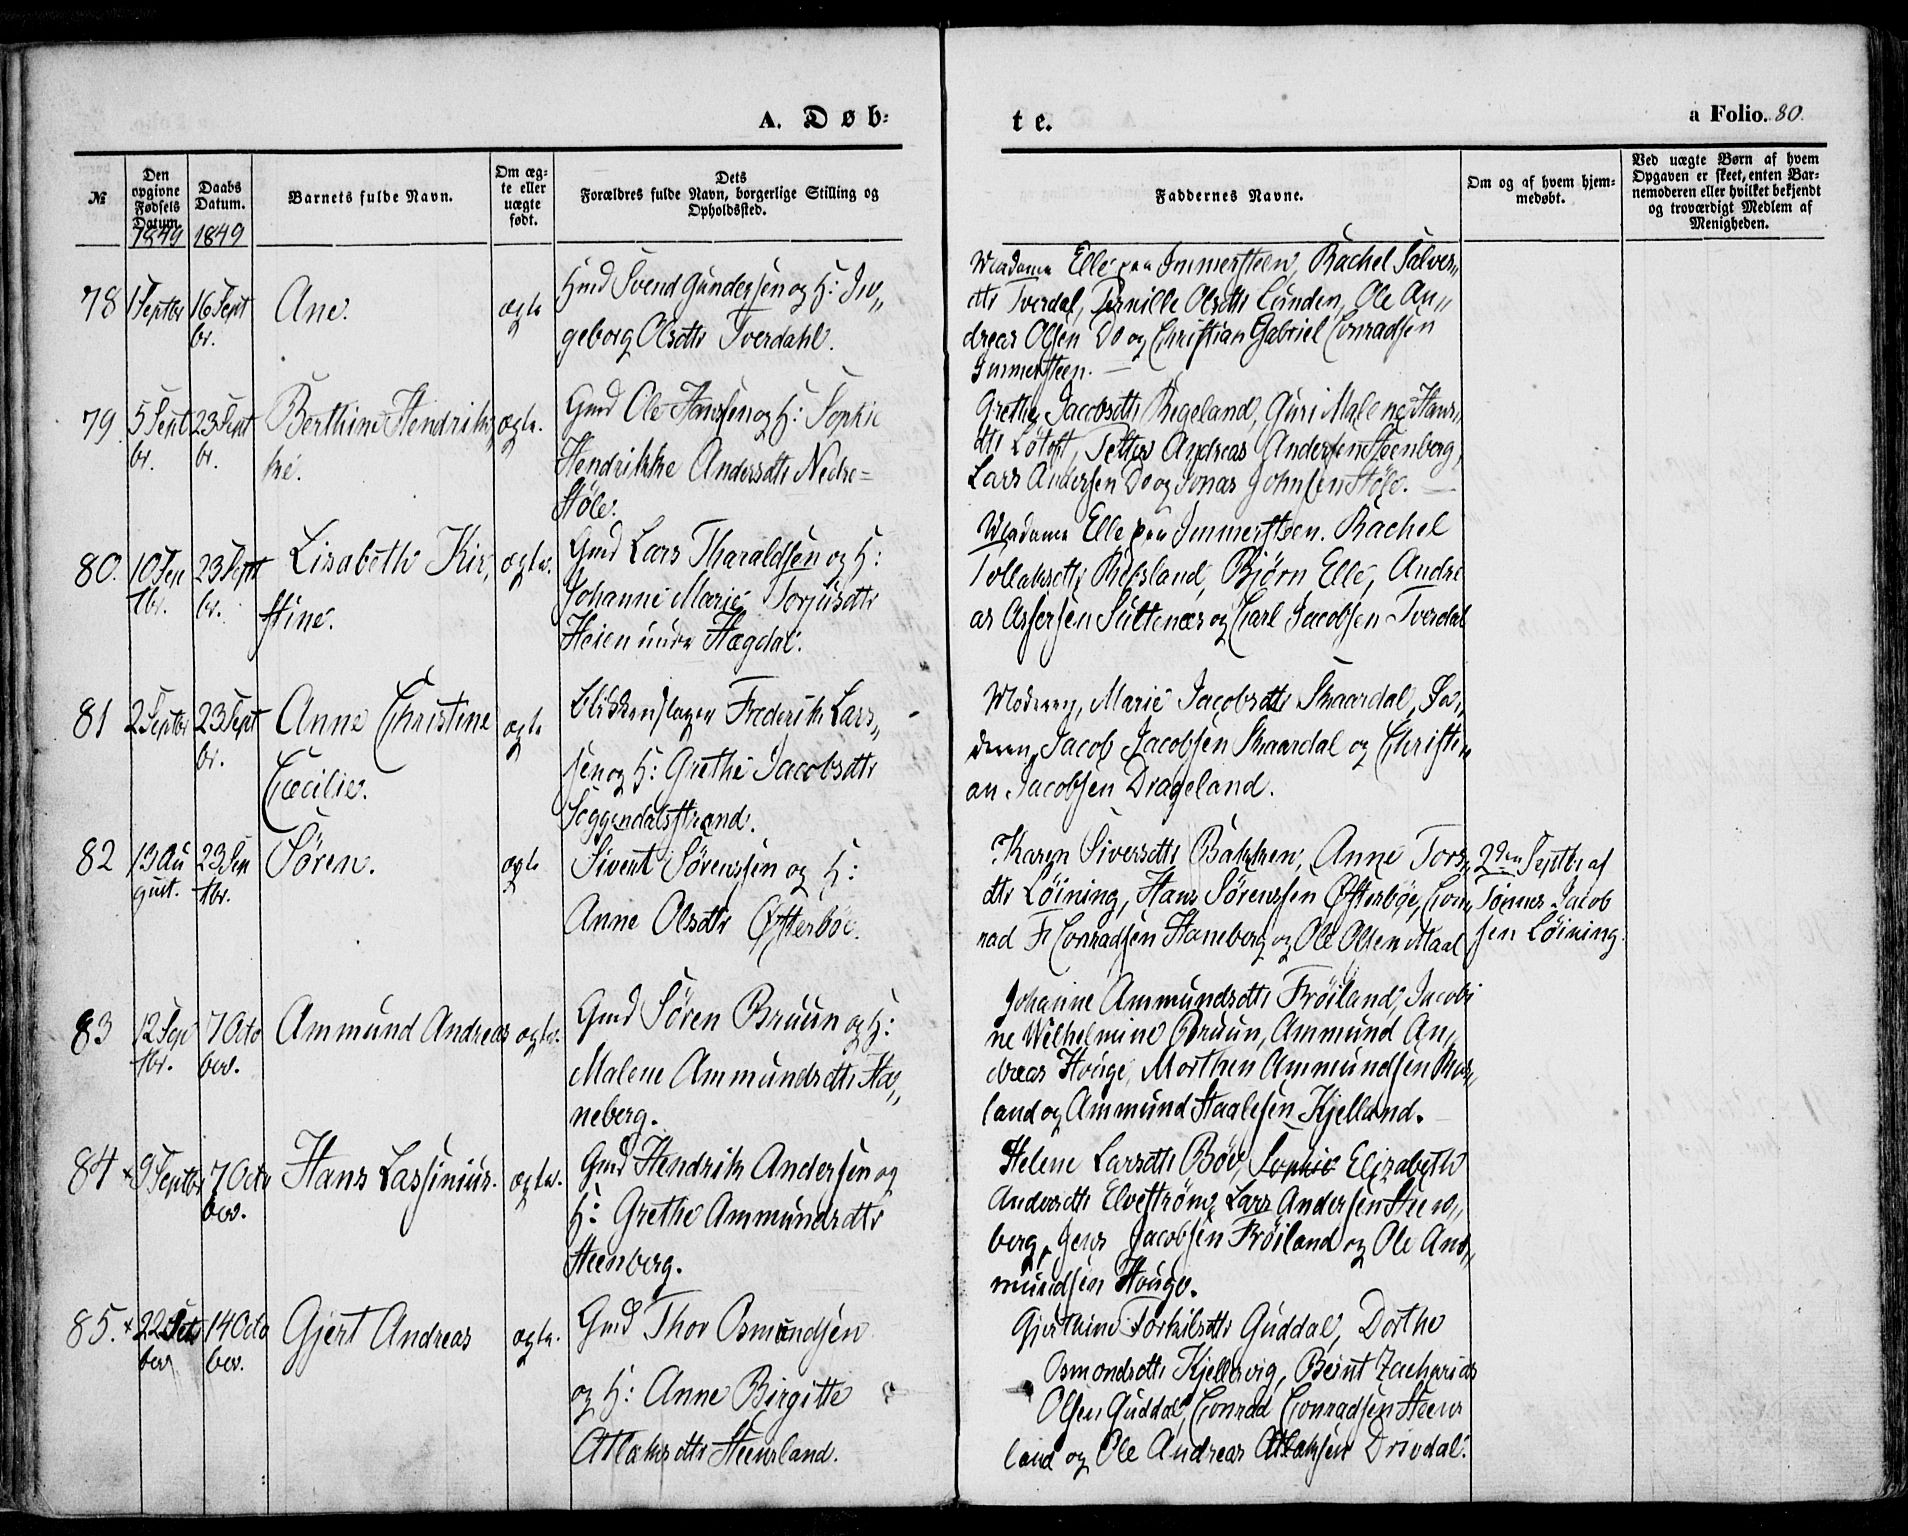 A. Døb-
te.
a Folio. 80.
№
Den opgivne Fødsels Datum. 1849
Daabs Datum. 1849
Barnets fulde Navn.
Om ægte eller uægte født.
Dets Forældres fulde Navn, borgerlige Stilling og Opholdssted.
Faddernes Navne.
Om og af hvem hjemmedøbt.
Ved uægte Børn af hvem Opgaven er skeet, enten Barnemoderen eller hvilket bekjendt og troværdigt Medlem af Menigheden.
78 1 Septbr 16 Sept br. Ane. ægte
Gmd Svend Gundersen og H: In„
geborg Olsdtr Tverdahl.
Madame Elle paa Immersteen, Rachel Salves„
dtr Tverdal, Pernille Olsdtr Lunden, Ole An„
dreas Olsen Do og Christian Gabriel Conradsen
Immersteen.
79. 5 Sept br. 23 Sept br. Berthine Hendrik,
ke. ægte.
Gmd Ole Hansen og H: Sophie
Hendrikke Andersdtr Nedre=
Støle.
Grethe Jacobsdtr Regeland, Guri Malene Hans„
dtr Løtoft, Petter Andreas Andersen Steenberg,
Lars Andersen Do og Jonas Johnsen Støle.
80. 10 Sep tbr. 23 Sept br. Lisabeth Kir,
stine. ægte.
Gmd Lars Tharaldsen og H:
Johanne Marie Torjusdtr
Heien under Hægdal.
Madame Elle paa Immersteen. Rachel
Tollaksdtr Refsland, Bjørn Elle, Andre
as Assersen Sletteness og Carl Jacobsen Tverdal
81 2 Septbr 23 Sept br. Anne Christine
Cæcilie. ægte
Blikkenslager Frederik Lars„
sen og H: Grethe Jacobsdtr
Soggendalsstrand.
Moderen, Marie Jacobsdtr Skaardal, Fa„
deren, Jacob Jacobsen Skaardal og Christi„
an Jacobsen Drageland.
82 13 Au gust. 23 Sep tbr. Søren. ægte
Sivert Sørenssen og H:
Anne Olsdtr Øfsterbøe.
Karen Siversdtr Bakken, Anne Tors„
dtr Løining, Hans Sørenssen Øfsterbøe, Con„
rad F. Conradsen Haneberg og Ole Olsen Maal
2den Septbr af
Tønnes Jacob
sen Løining.
83 12 Sep tbr. 7 Octo ber. Ammund Andreas ægte.
Gmd Søren Bruun og H:
Malene Ammundsdtr Ha„
neberg.
Johanne Ammundsdtr Frøiland, Jacobi
ne Wilhelmine Bruun, Ammund An„
dreas Houge, Morthen Ammundsen
land og Ammund Staalesen Kjelland.
84 + 9 Septbr 7 Octo ber. Hans Lassinius. ægte.
Gmd Hendrik Andersen og
H: Grethe Ammundsdtr
Steenberg.
Helene Larsdtr Bøe, Sophie Elizabeth
Andersdtr Elvestrøm, Lars Andersen Steen„
berg, Jens Jacobsen Frøiland og Ole Am„
mundsen Houge.
85. + 22 ber 14 Octo ber. Gjert Andreas ægte.
Gmd Thor Osmundsen
og H: Anne Birgitte
Atlaksdtr Steensland.
Gjerthine Torkilsdtr Guddal, Dorthe
Osmondsdtr Kjellesvig, Beint Zacharias
Olsen Guddal, Conrad Conradsen Steens
land og Ole Andreas Atlaksen Drivdal.